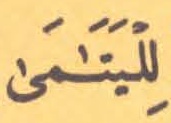 لِلْيَتَٰمَىٰ